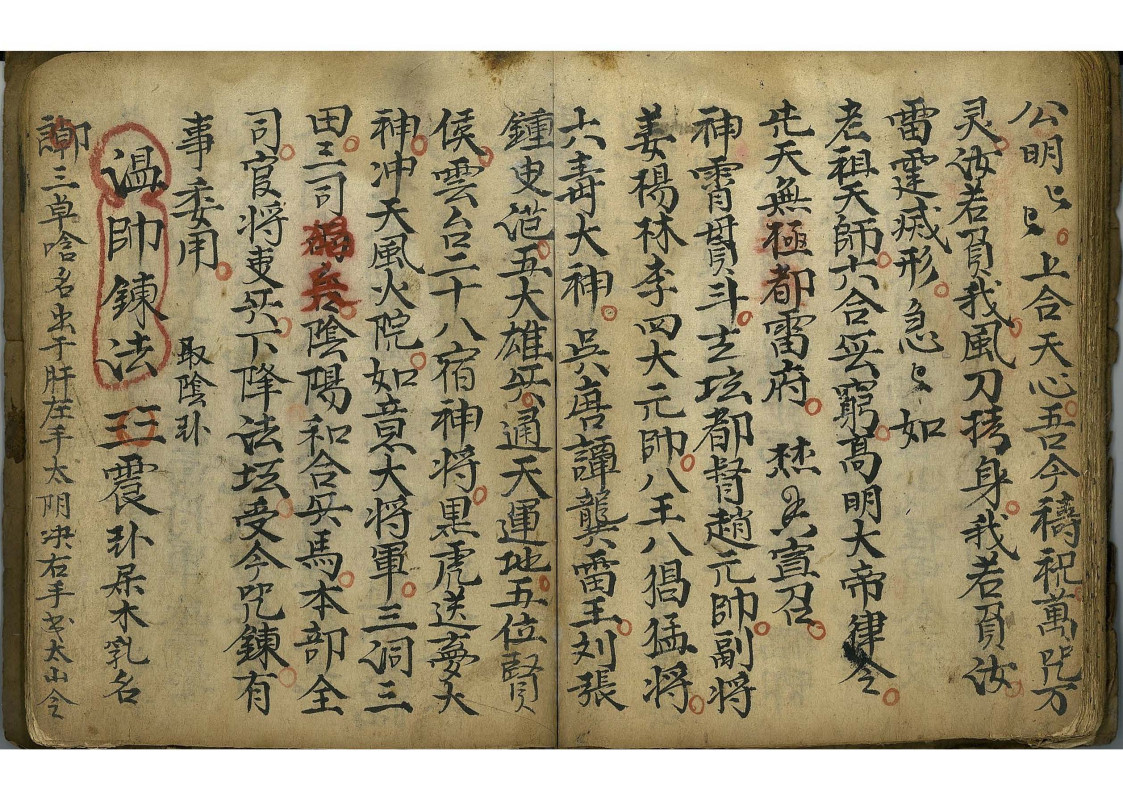 公明㔾〻上合天心。吾今禱祝萬咒万
灵。汝若負我風刀拷身。我若負汝。
雷霆滅形。急〻如
老祖天師。六合无窮。髙明大帝律令。
先天無極都雷府。 宣召。
神霄貫斗。玄坛都督趙元帥。副将
姜楊林李四大元帥。八王八猖猛将。
六毒大神。吳唐譚龔雷王。刘張
鍾史范。五大雄兵。通天運地。五位賢
侯。雲台二十八宿神将。黒虎送夢大
神。冲天風火院。如意大将軍。三洞三
田。三司 兵。陰陽和合兵馬。本部全
司。官将吏兵。下降法坛。受今咒鍊。有
事委用。 取陰卦
温帥鍊法 三震卦 木乳名
三草 名 于肝 手太阴 右手 太山令